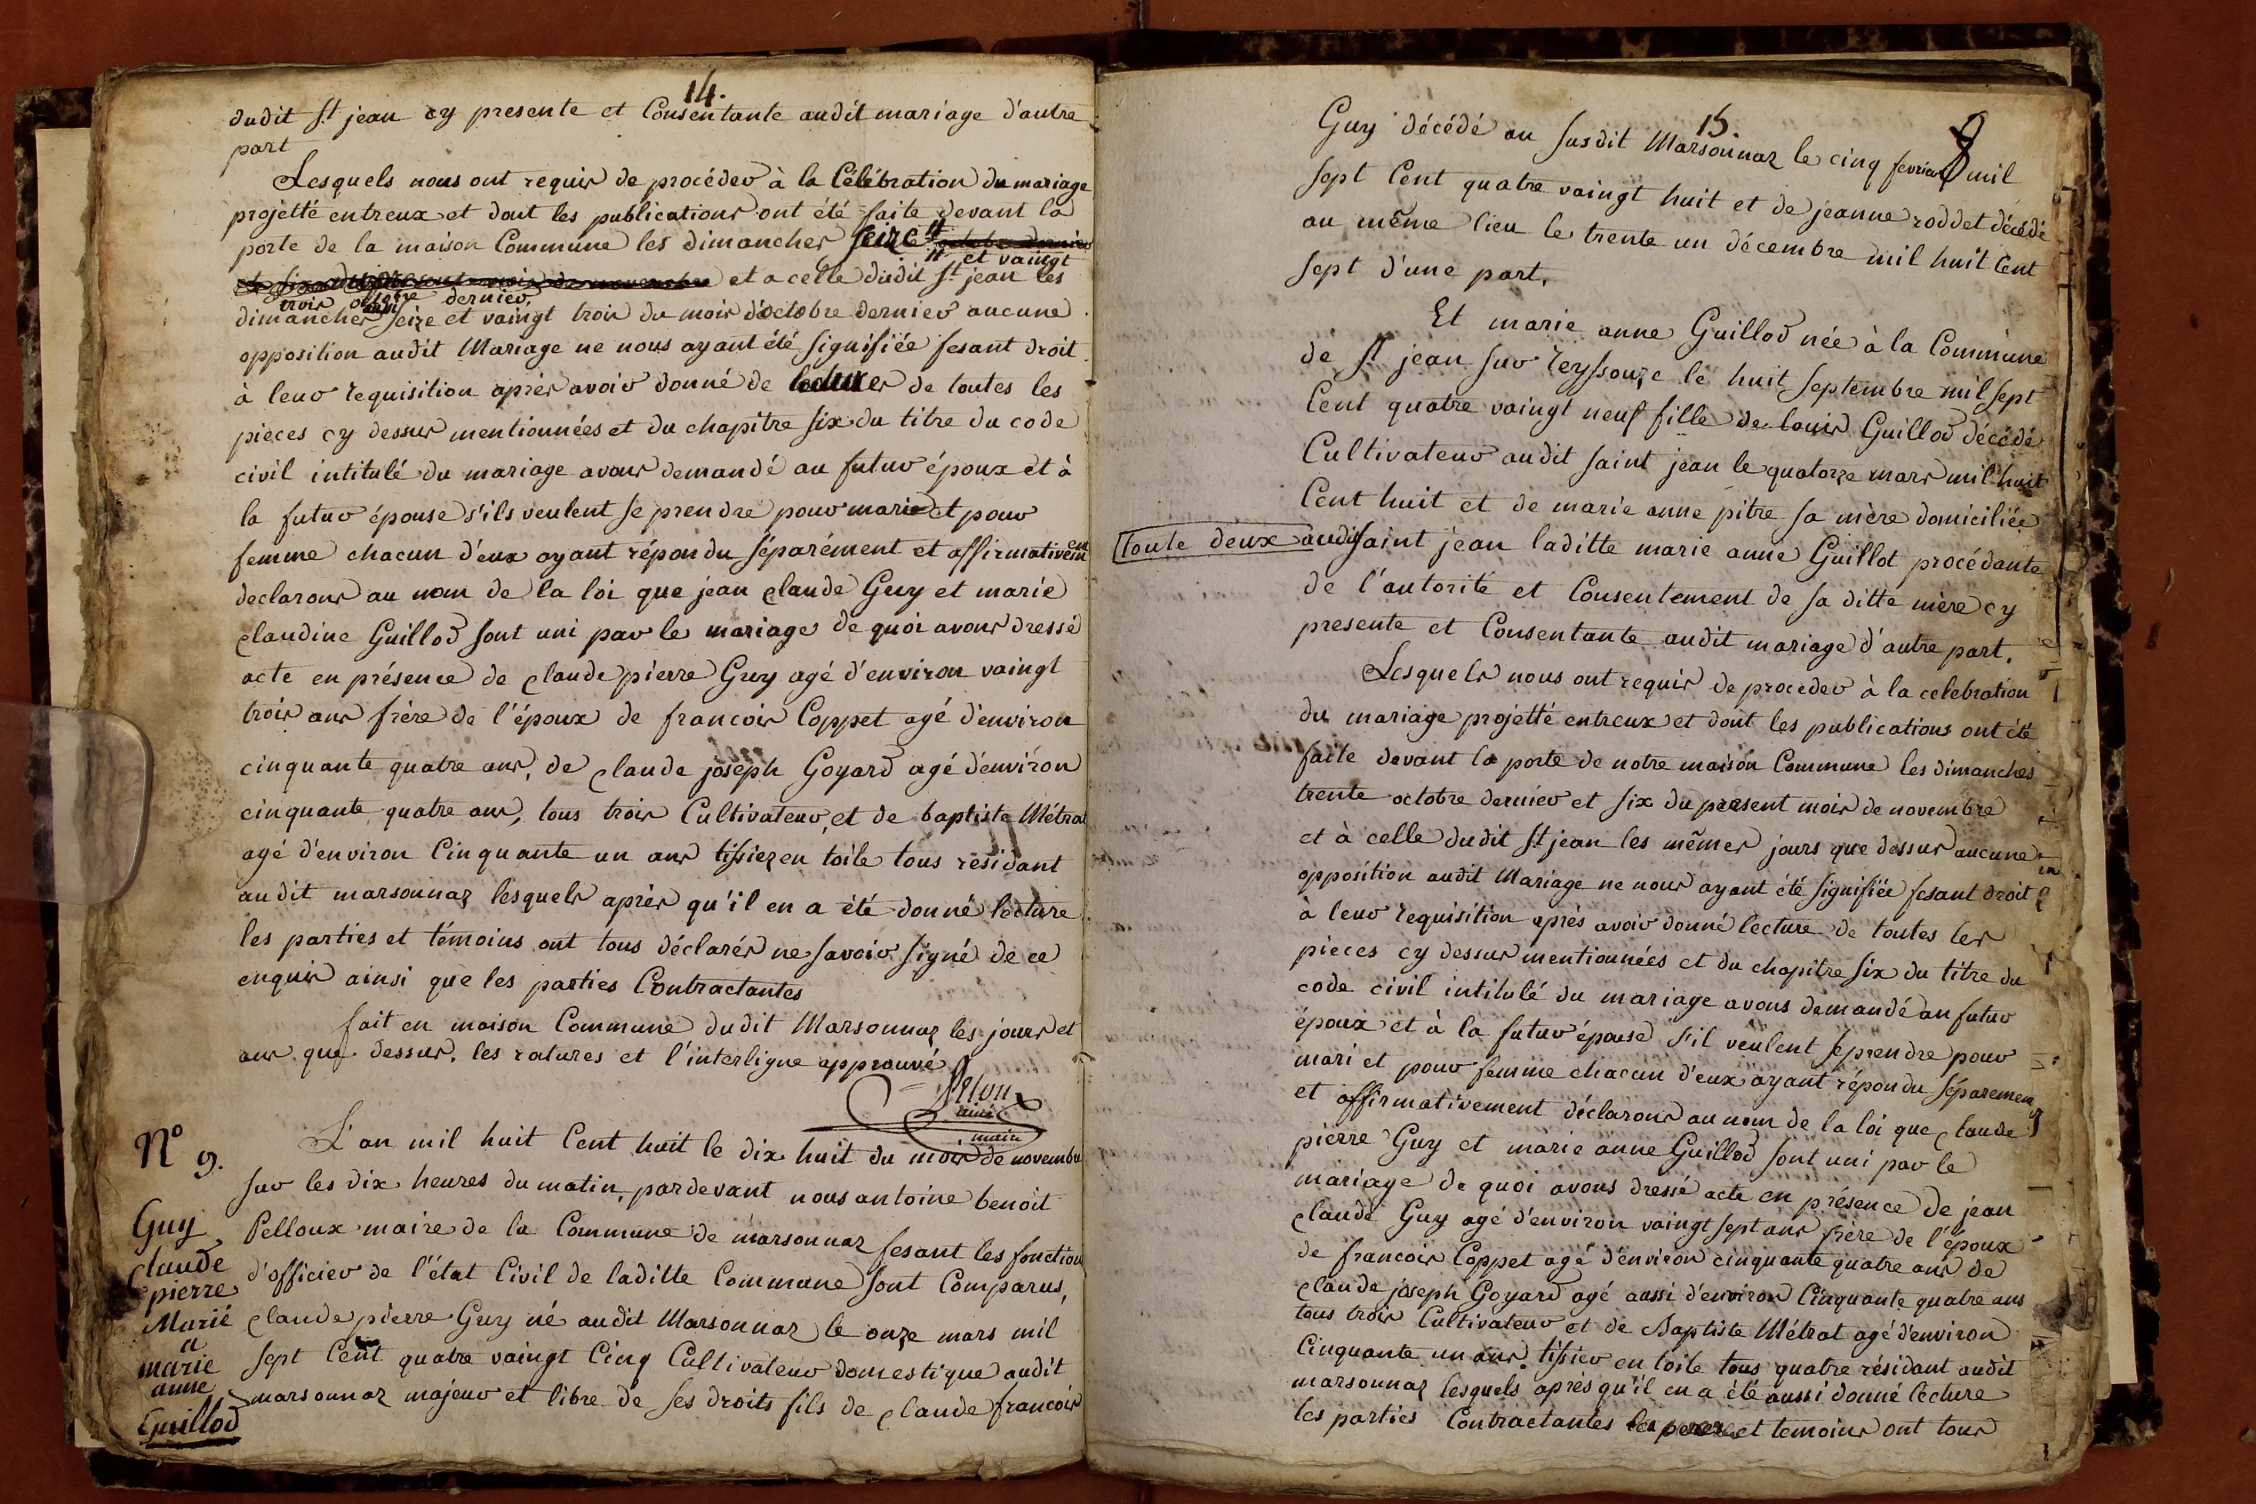 14.
dudit St jean cy presente et Consentante audit mariage d'autre
part
Lesquels nous ont requis de procéder à la Célébration du mariage
projetté entreux et dont les publications ont été faite devant la
porte de la maison Commune les dimanches seize # octobre dernier
# et vaingt
et a celle dudit St jean les
trois octobre dernier
dimanches seize et vaingt trois du mois d'octobre dernier aucune
opposition audit Mariage ne nous ayant été signifiée fesant droit
à leur requisition après avoir donné de lecture de toutes les
pieces cy dessus mentionnées et du chapitre six du titre du code
civil intitulé du mariage avons demandé au futur époux et à
la futur épouse s'ils veulent se prendre pour marie et pour
femme chacun d'eux ayant répondu séparément et affirmativement
declarons au nom de la loi que jean claude Guy et marie
claudine Guillod sont uni par le mariage de quoi avons dressé
acte en présence de claude pierre Guy agé d'environ vaingt
trois ans frère de l'époux de francois Coppet agé d'environ
cinquante quatre ans, de claude joseph Goyard agé d'environ
cinquante quatre ans, tous trois Cultivateur, et de baptiste Métrat
agé d'environ Cinquante un ans tissier en toile tous résidant
audit marsonnaz lesquels après qu'il en a été donné lecture
les parties et témoins ont tous déclarés ne savoir signé de ce
enquis ainsi que les parties Contractantes
fait en maison Commune dudit Marsonnaz les jours et
ans que dessus. les ratures et l'interligne approuvé
maire
N° 9.
L'an mil huit Cent huit le dix huit du mois de novembre
sur les dix heures du matin, pardevant nous antoine benoit
Guy
Pelloux maire de la Commune de marsonnaz fesant les fonction
claude
d'officier de l'état Civil de laditte Commune sont Comparus,
pierre
Marié
claude pierre Guy né audit Marsonnaz le onze mars mil
a
marie
sept Cent quatre vaingt Cinq Cultivateur domestique audit
anne
marsonnaz majeur et libre de ses droits fils de claude francois
Guillod
15.
8
Guy décédé au susdit Marsonnaz le cinq fevrier mil
sept Cent quatre vaingt huit et de jeanne roddet décédé
au même lieu le trente un décembre mil huit Cent
sept d'une part.
Et marie anne Guillod née à la Commune
de St jean sur reyssouze le huit septembre mil sept
Cent quatre vaingt neuf fille de louis Guillod décédé
Cultivateur audit saint jean le quatorze mars mil huit
Cent huit et de marie anne pitre sa mère domiciliée
toute deux audit saint jean laditte marie anne Guillot procédante
de l'autorité et Consentement de sa ditte mère cy
presente et Consentante audit mariage d'autre part.
Lesquels nous ont requis de proceder à la celebration
du mariage projetté entreux et dont les publications ont été
faite devant la porte de notre maison Commune les dimanches
trente octobre dernier et six du present mois de novembre
et à celle dudit St jean les mêmes jours que dessus aucune
opposition audit Mariage ne nous ayant été signifiée fesant droit
à leur requisition après avoir donné lecture de toutes les
pieces cy dessus mentionnées et du chapitre six du titre du
code civil intitulé du mariage avons demandé au futur
époux et à la futur épouse s'il veulent se prendre pour
mari et pour femme chacun d'eux ayant répondu séparement
et affirmativement déclarons au nom de la loi que claude
pierre Guy et marie anne Guillod sont uni par le
mariage de quoi avons dressé acte en présence de jean
claude Guy agé d'environ vaingt sept ans frère de l'époux
de francois Coppet agé d'environ cinquante quatre ans de
claude joseph Goyard agé aussi d'environ Cinquante quatre ans
tous trois Cultivateur et de Baptiste Métrat agé d'environ
Cinquante un ans. tissier en toile tous quatre résidant audit
marsonnaz lesquels après qu'il en a été aussi donné lecture
les parties Contractantes et temoins ont tous